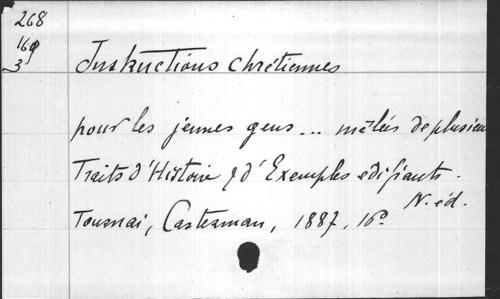 268
169
3
Instructions chrétiennes
pour les jeunes gens ... mêlées de plusieu
Traits d'Histoire & d'Exemples edifiants.
N. éd.
Tournai, Casterman, 1887, 16º